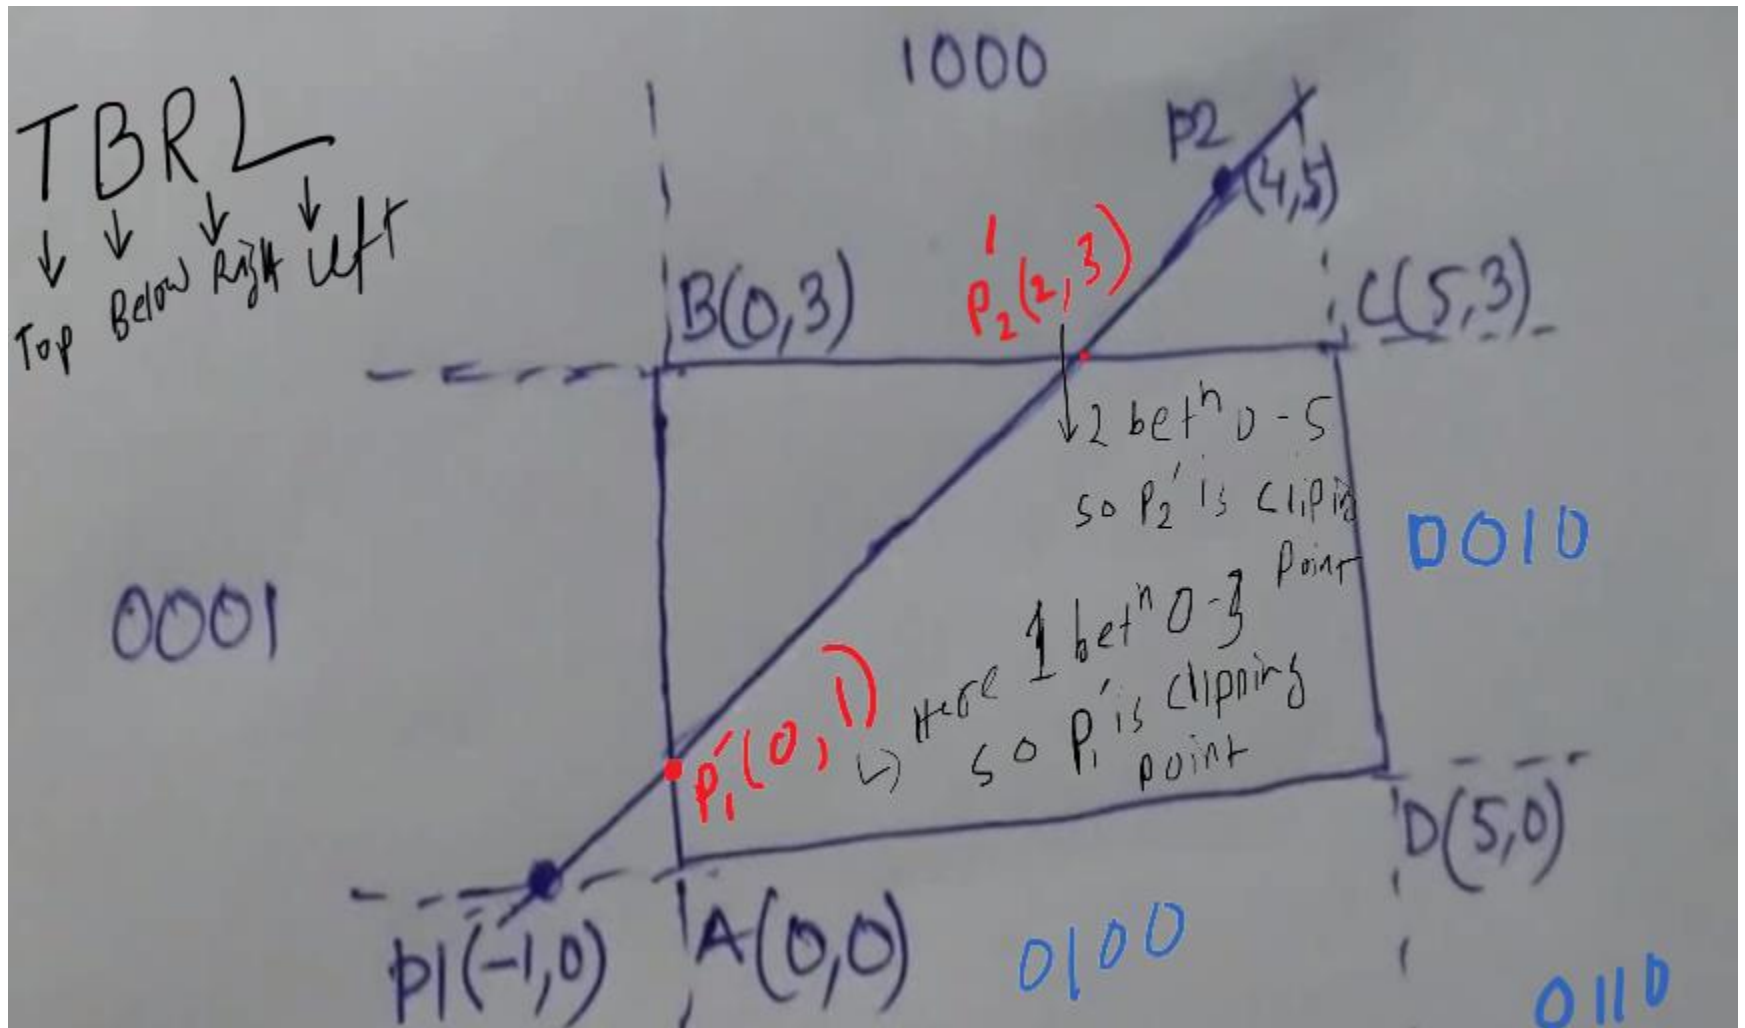 1000
TBRL
Top Below Right Left
P2
(4,5)
P2'(2,3)
B(0,3)
C(5,3)
2 betn 0-5
so P2' is clipin
point
0010
0001
Here 1 betn 0-3
so P1' is clipping
point
P1'(0,1)
D(5,0)
P1(-1,0)
A(0,0)
0100
0110